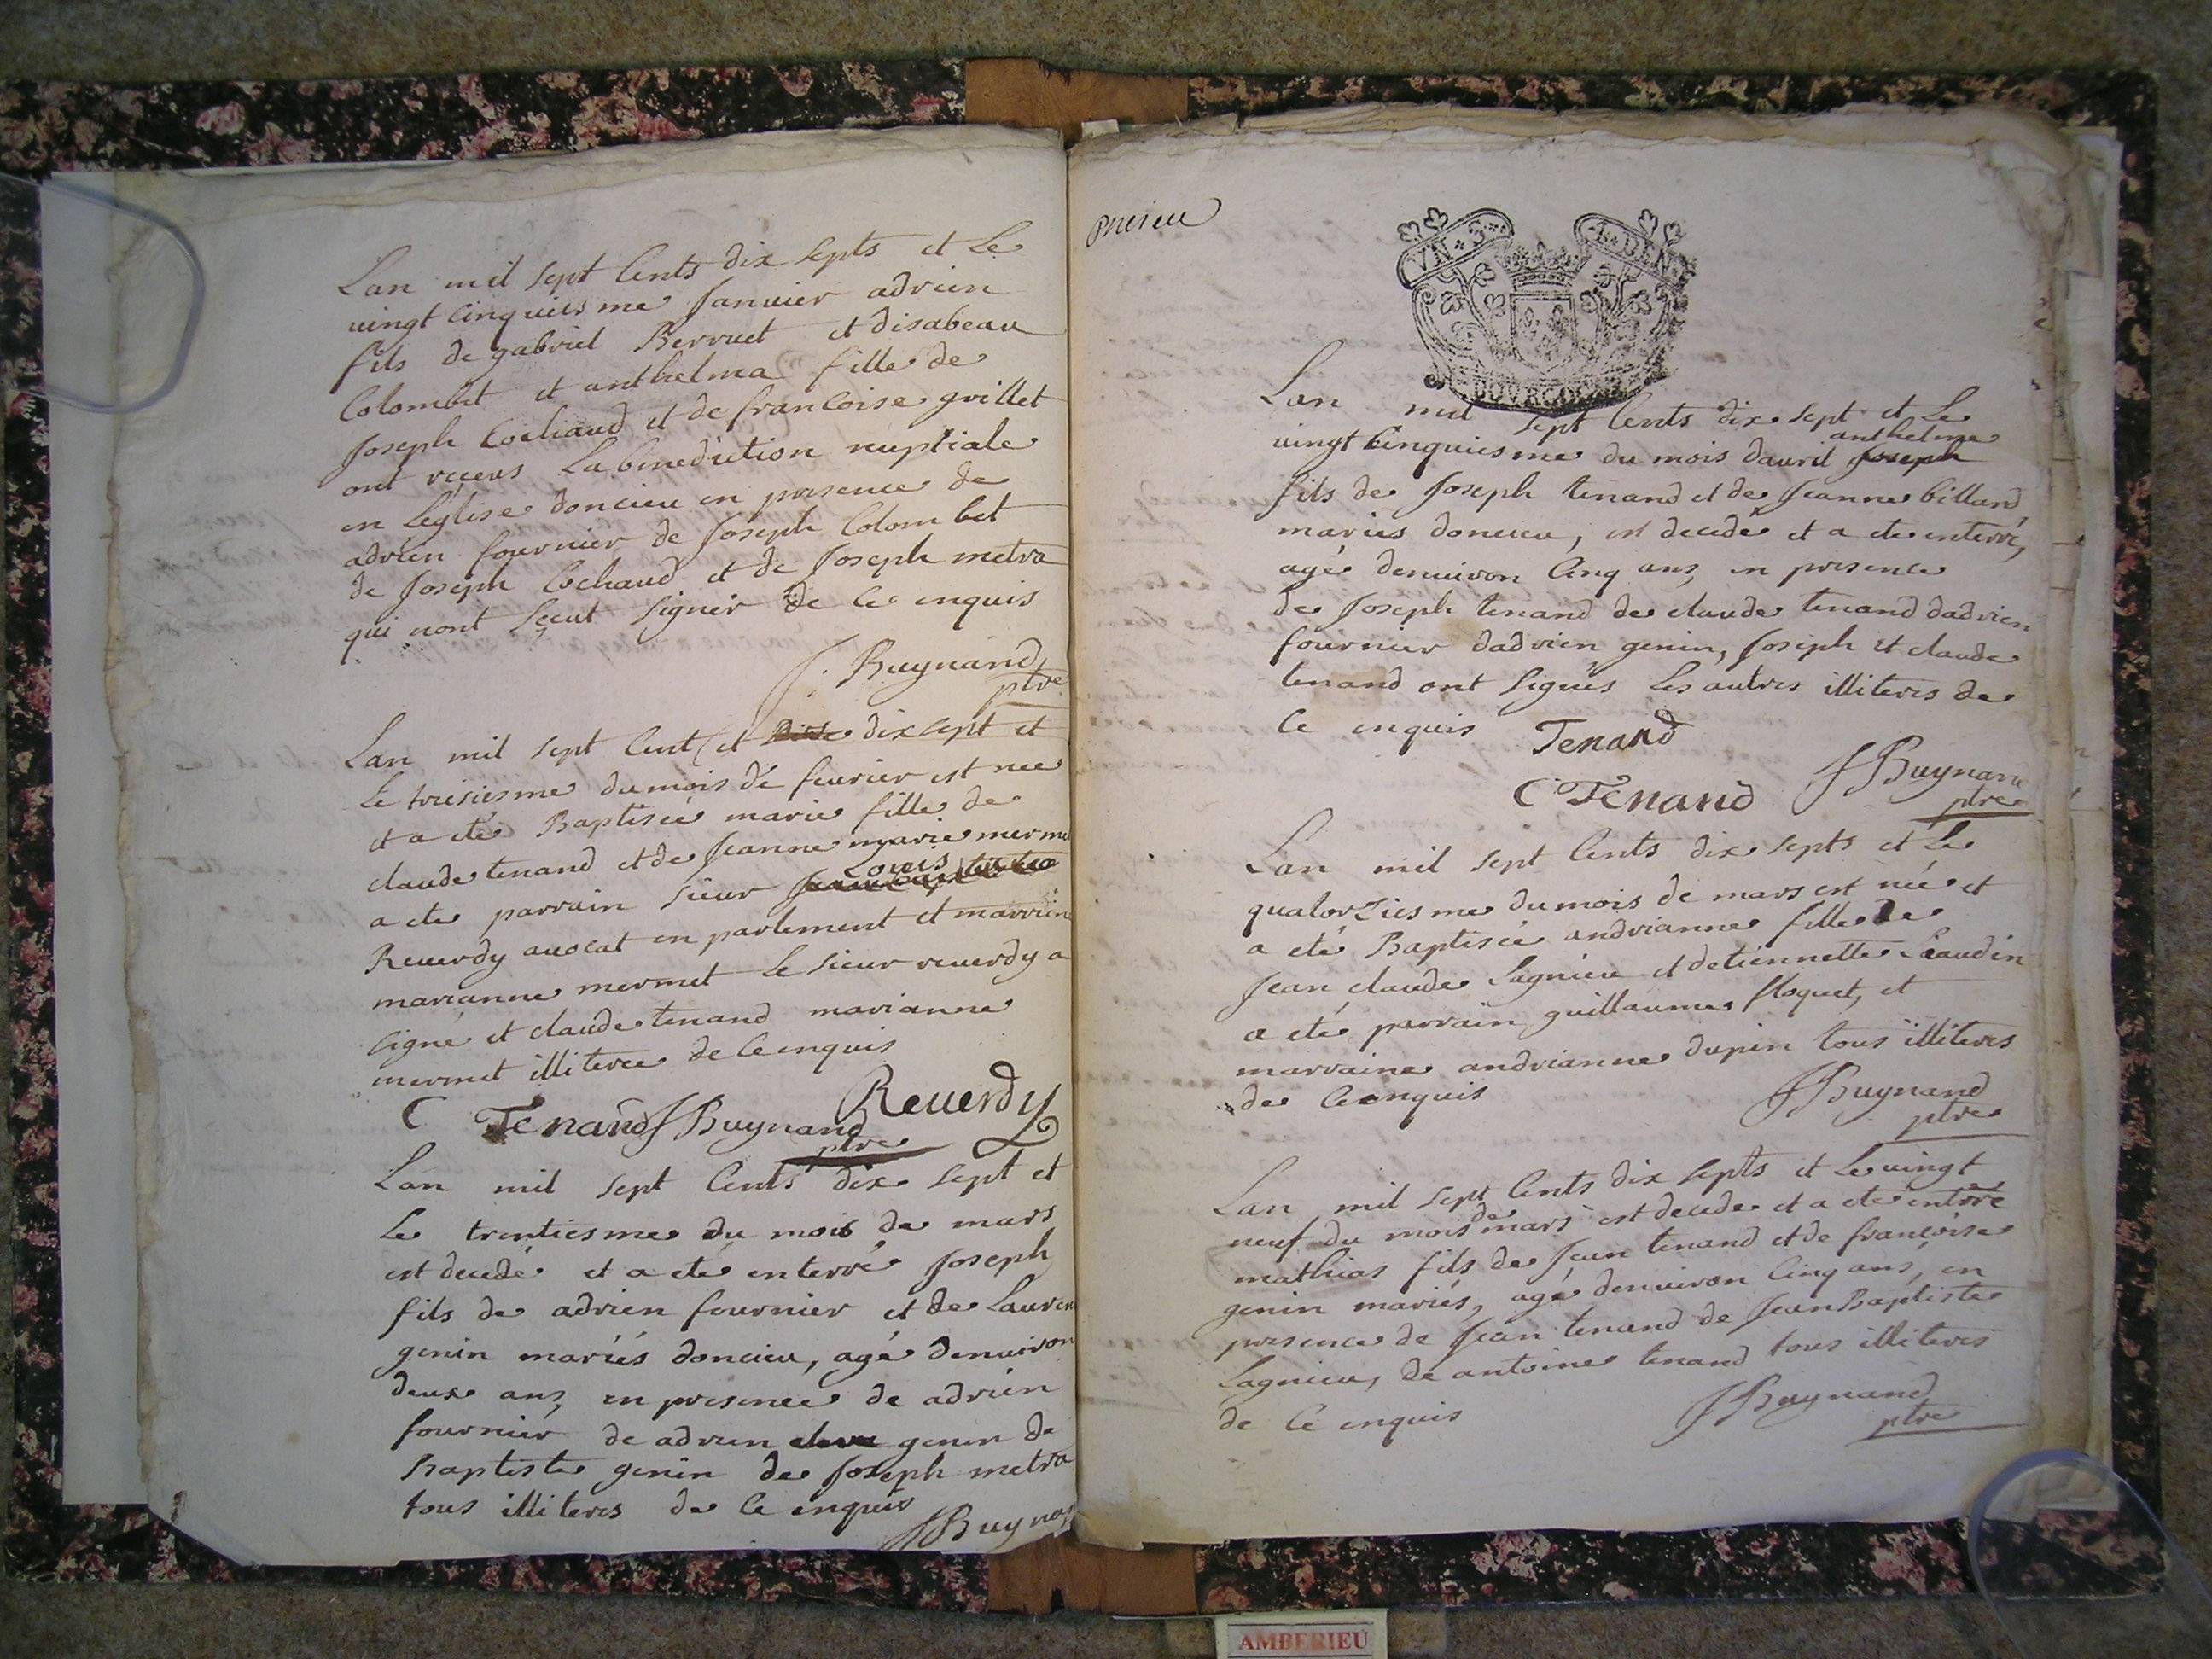 Lan mil sept Cents dix septs et Le
vingt cinquiesme Januier adrien
fils de gabriel Berruet et disabeau
Colombet et anthelma fille de
Joseph Cochaud et de francoise grillet
ont receus La benediction nuptiale
en Léglise doncieu en presence de
adrien fournier de Joseph Colombet
de Joseph Cochaud et de Joseph metra
qui nont sçeut signer de ce enquis
J. Buynand
ptre
Lan mil sept Cent et dix sept et
Le troisiesme du mois de feurier est nee
et a eté Baptisée marie fille de
claude tenand et de Jeanne marie merme
a ete parrain sieur Louis
Reuerdy auocat en parlement et marrine
marianne mermet Le sieur reuerdy a
signé et claude tenand marianne
mermet illiteree de ce enquis
Reuerdy
C Tenand J Buynand
ptre
Lan mil sept Cents dix sept et
Le trentiesme du mois de mars
est decedé et a eté enterré Joseph
fils de adrien fournier et de Lauren
genin mariés doncieu, agé denuiron
deux ans en presence de adrien
fournier de adrien genin de
Baptiste genin de Joseph metra
tous illiteres de ce enquis
J Buyna
oncieu
VN S. 8. DEN.
BOVRGOGNE
Lan mil sept Cents dix sept et Le
anthelme
vingt Cinquiesme du mois dauril Joseph
fils de Joseph tenand et de Jeanne billard
mariés doncieu, est decedé et a ete enterré,
agé denuiron Cinq ans, en presence
de Joseph tenand de claude tenand dadrien
fournier dadrien genin, Joseph et claude
tenand ont signés Les autres illiteres de
Ce enquis Tenand
C Tenand J Buynand
ptre
Lan mil sept Cents dix septs et Le
quatorziesme du mois de mars est née et
a eté Baptisée andrianne fille de
Jean claude Lagnieu et detiennette
a eté parrain guillaume floquet, et
marraine andrianne dupin tous illiteres
de Ce enquis J Buynand
ptre
Lan mil sept Cents dix septs et Le vingt
neuf du mois de mars est decede et a ete enterré
mathias fils de Jean tenand et de francoise
genin mariés, agé denuiron Cinq ans, en
presence de Jean tenand de Jean Baptiste
Lagnieu, de antoine tenand tous illiteres
de Ce enquis J Buynand
ptre
AMBERIEU